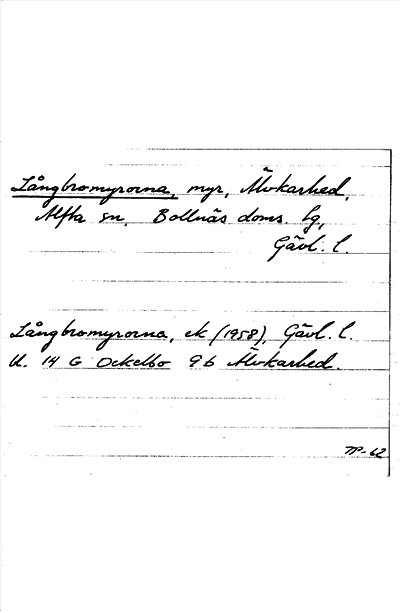 Långbromyrorna, myr, Älvkarhed,
Alfta sn, Bollnäs doms. lg,
Gävl. l.
Långbromyrorna, ek (1958), Gävl. l.
U. 14 G Ockelbo 9 b Älvkarhed.
-62